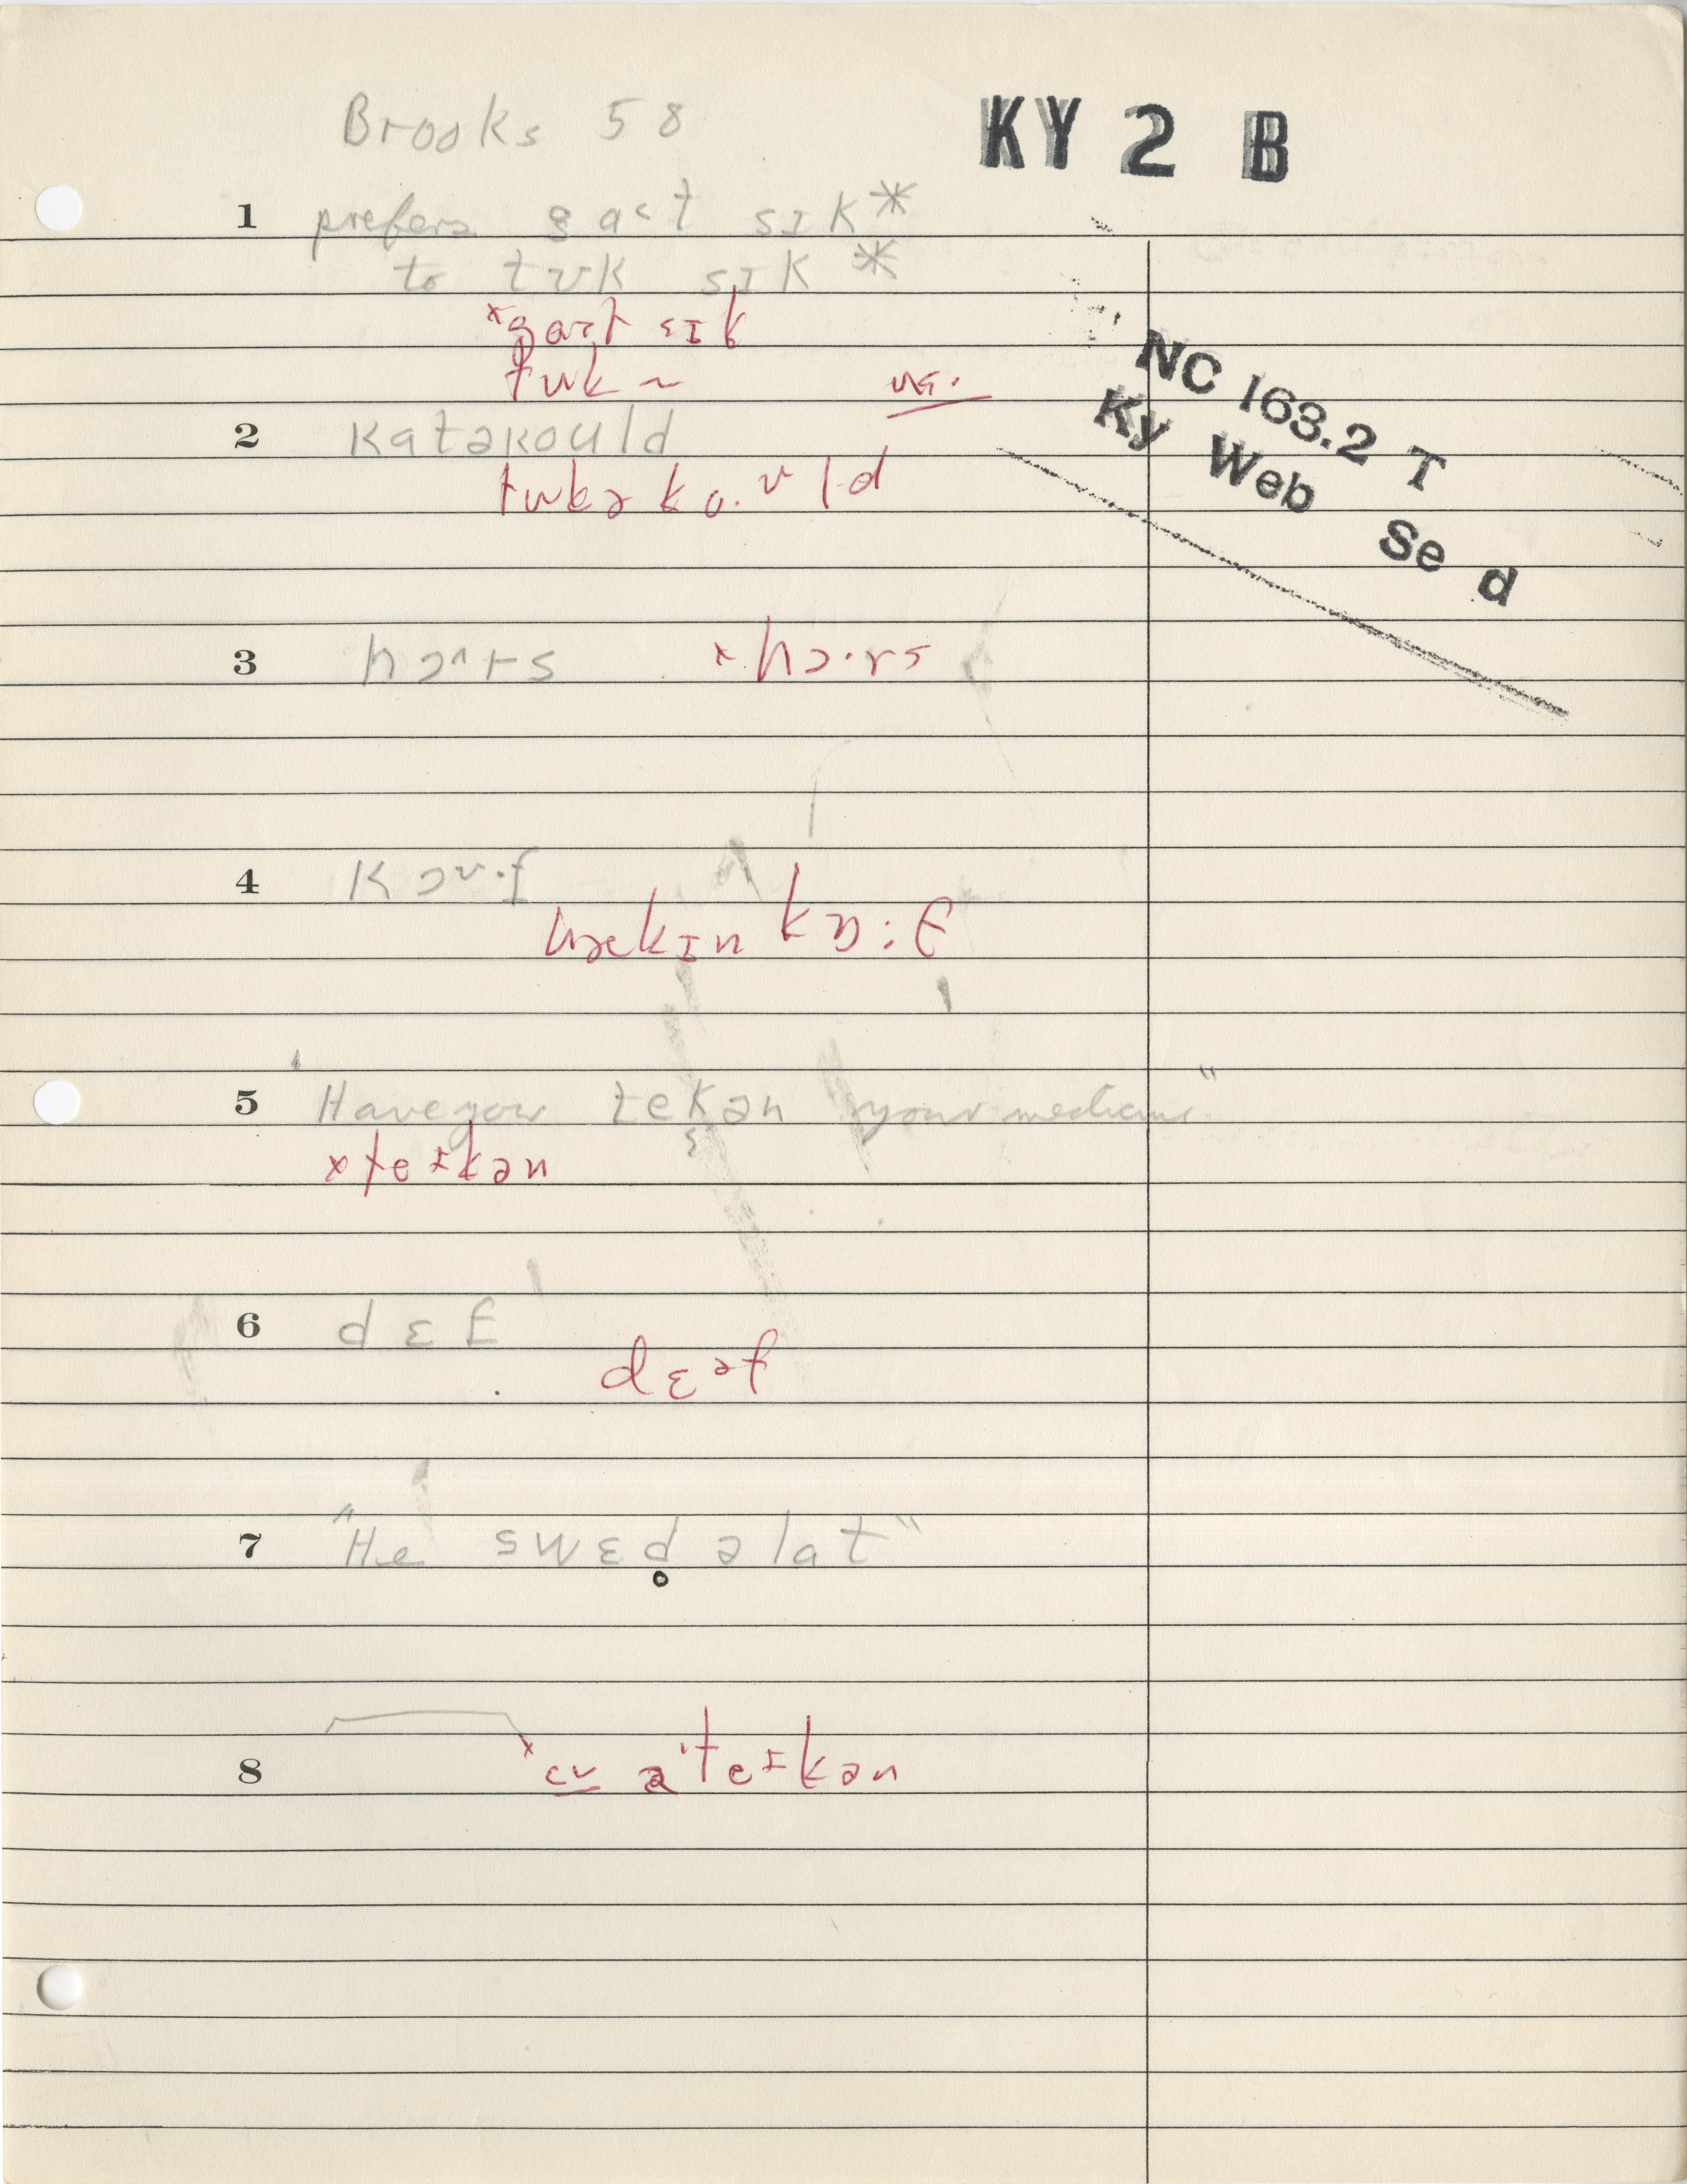 Brooks 58
KY 2 B
1 prefers gact sɪk*
to tʊk sɪk*
NC 163.2 T
Ky Web Se d
xgart sɪk
tuk ~
2 katəkould
tukə ko.ʊld
3 hɔ^rs xhɔ.rs
4 kɔʊ.f
kɔ:f
5 "Have you tekən your medicine"
ɛ
xteɪkən
6 dɛf
dɛəf
7 "He swɛd̥ əlat"
8 x cv ə'teɪkən